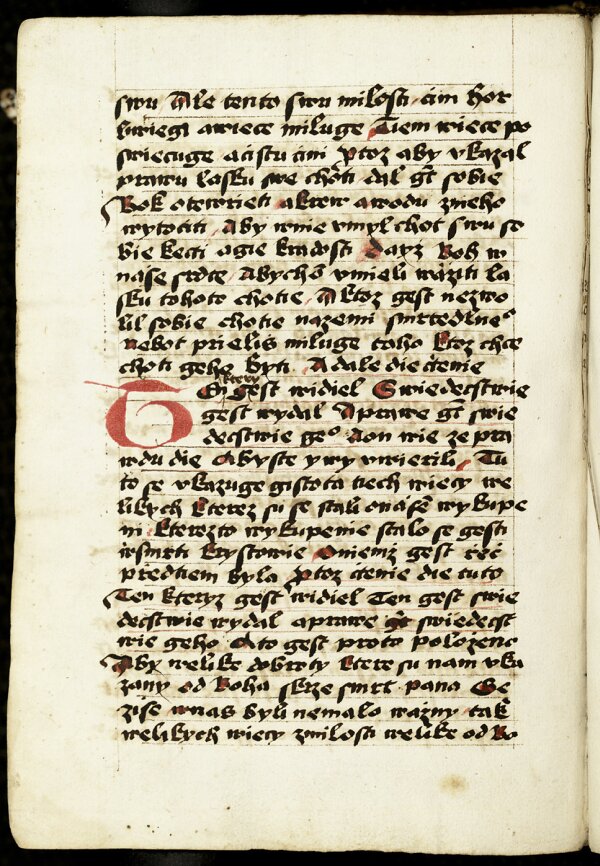 swu Ale tento swu milosti cim hor
liwiegi awiece miluge Tiem wiece po
swiecuge acistu cini Protoz aby vkazal
prawu lasku swe choti dal gt sobie
Bok otewrieti akrew awodu zneho
wytociti Aby wnie vmyl chot swu so
bie kecti ogie kradosti Dayz Boh w
nase srdce Abychom vmieli waziti la
sku tohoto chotie Aktoz gest nezwo
lil sobie chotie nazemi smrtedlneo
nebot prielis miluge toho Ktoz chce
choti geho byti Adale die ctenie
Ten ktery gest widiel Swiedecstwie
gest wydal Aprawe gt swie
decstwie geo Aon wie ze pra
wdu die Abyste y wy vwierili Tu
to se vkazuge gistota tiech wiecy we
likych kterez su se stali onasem wykupe
ni kterezto wykupenie stalo se gest
wsmrti krystowie Oniemz gest rec
predtiem byla Protoz ctenie die tuto
Ten kteryz gest widiel Ten gest swie
decstwie wydal aprawe gt swiedecst
wie geho Ato gest proto polozeno
Aby welike dobroty ktere su nam vka
zany od Boha skrze smrt pana Ge
zise wnas byli nemalo wazny tak
welikych wiecy zmilosti welike od Bo